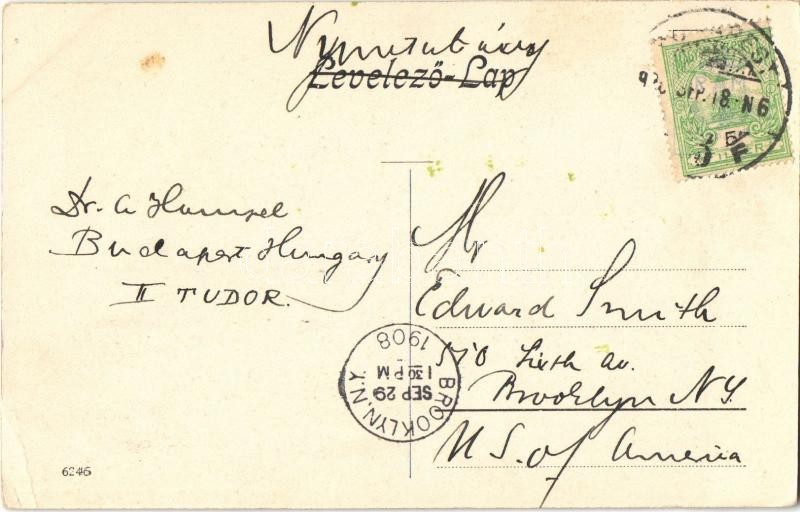 Nyomtatvány
Levelező-Lap
908 SEP. 18 N6
5
FILLER
Dr. A Hempel
Budapest Hungary
II TUDOR.
Mr
Edward Smith
570 Sixth av.
Brooklyn NY.
U S. of America
BROOKLYN N.Y.
SEP 29
1 30 PM
1908
6246